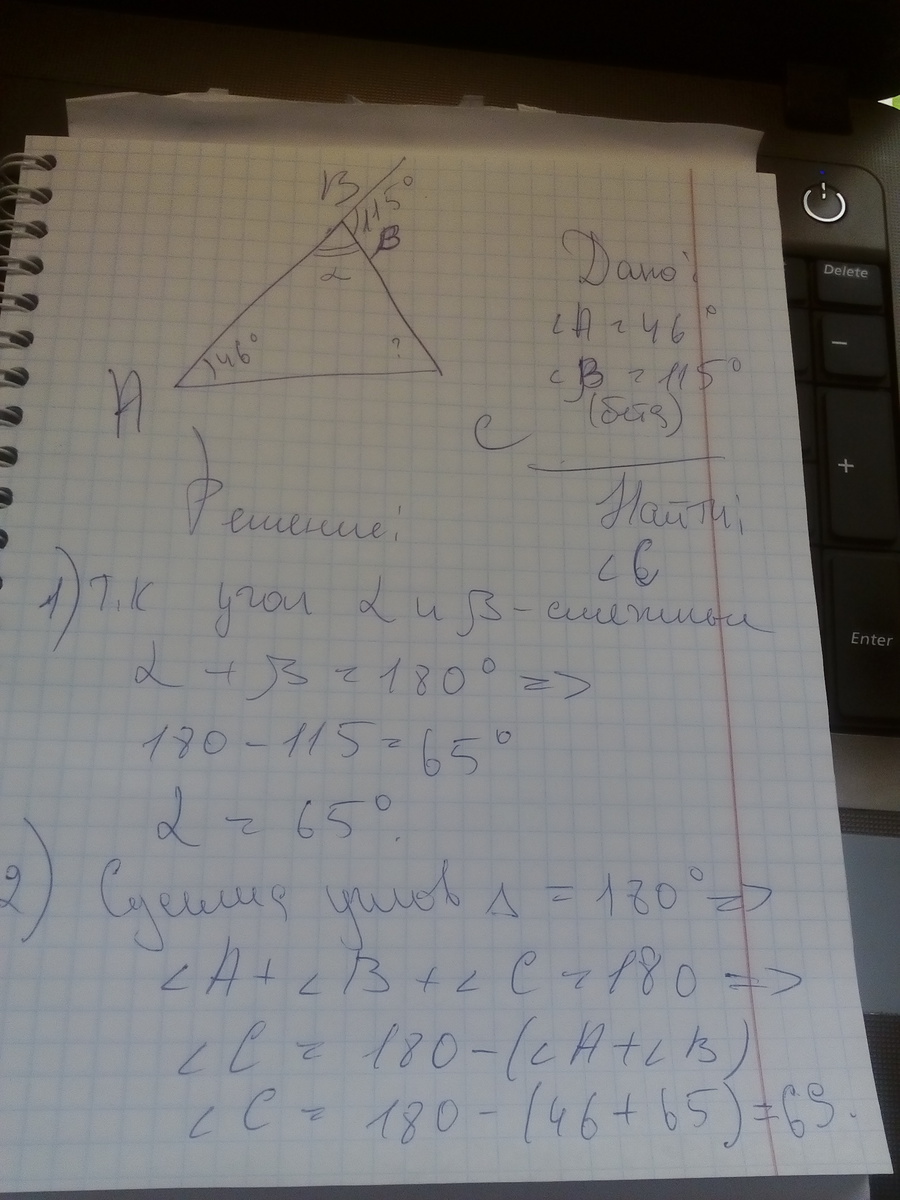 B
115°
β
α
46°
?
A
C
Дано:
∠A = 46°
∠β = 115°
(бета)
Найти:
∠C
Решение:
1) Т.К угол α и β - смежные
α + β = 180° =>
180 - 115 = 65°
α = 65°.
2) Сумма углов Δ = 180° =>
∠A + ∠B + ∠C = 180 =>
∠C = 180 - (∠A + ∠B)
∠C = 180 - (46 + 65) = 69.
Delete
-
+
Enter